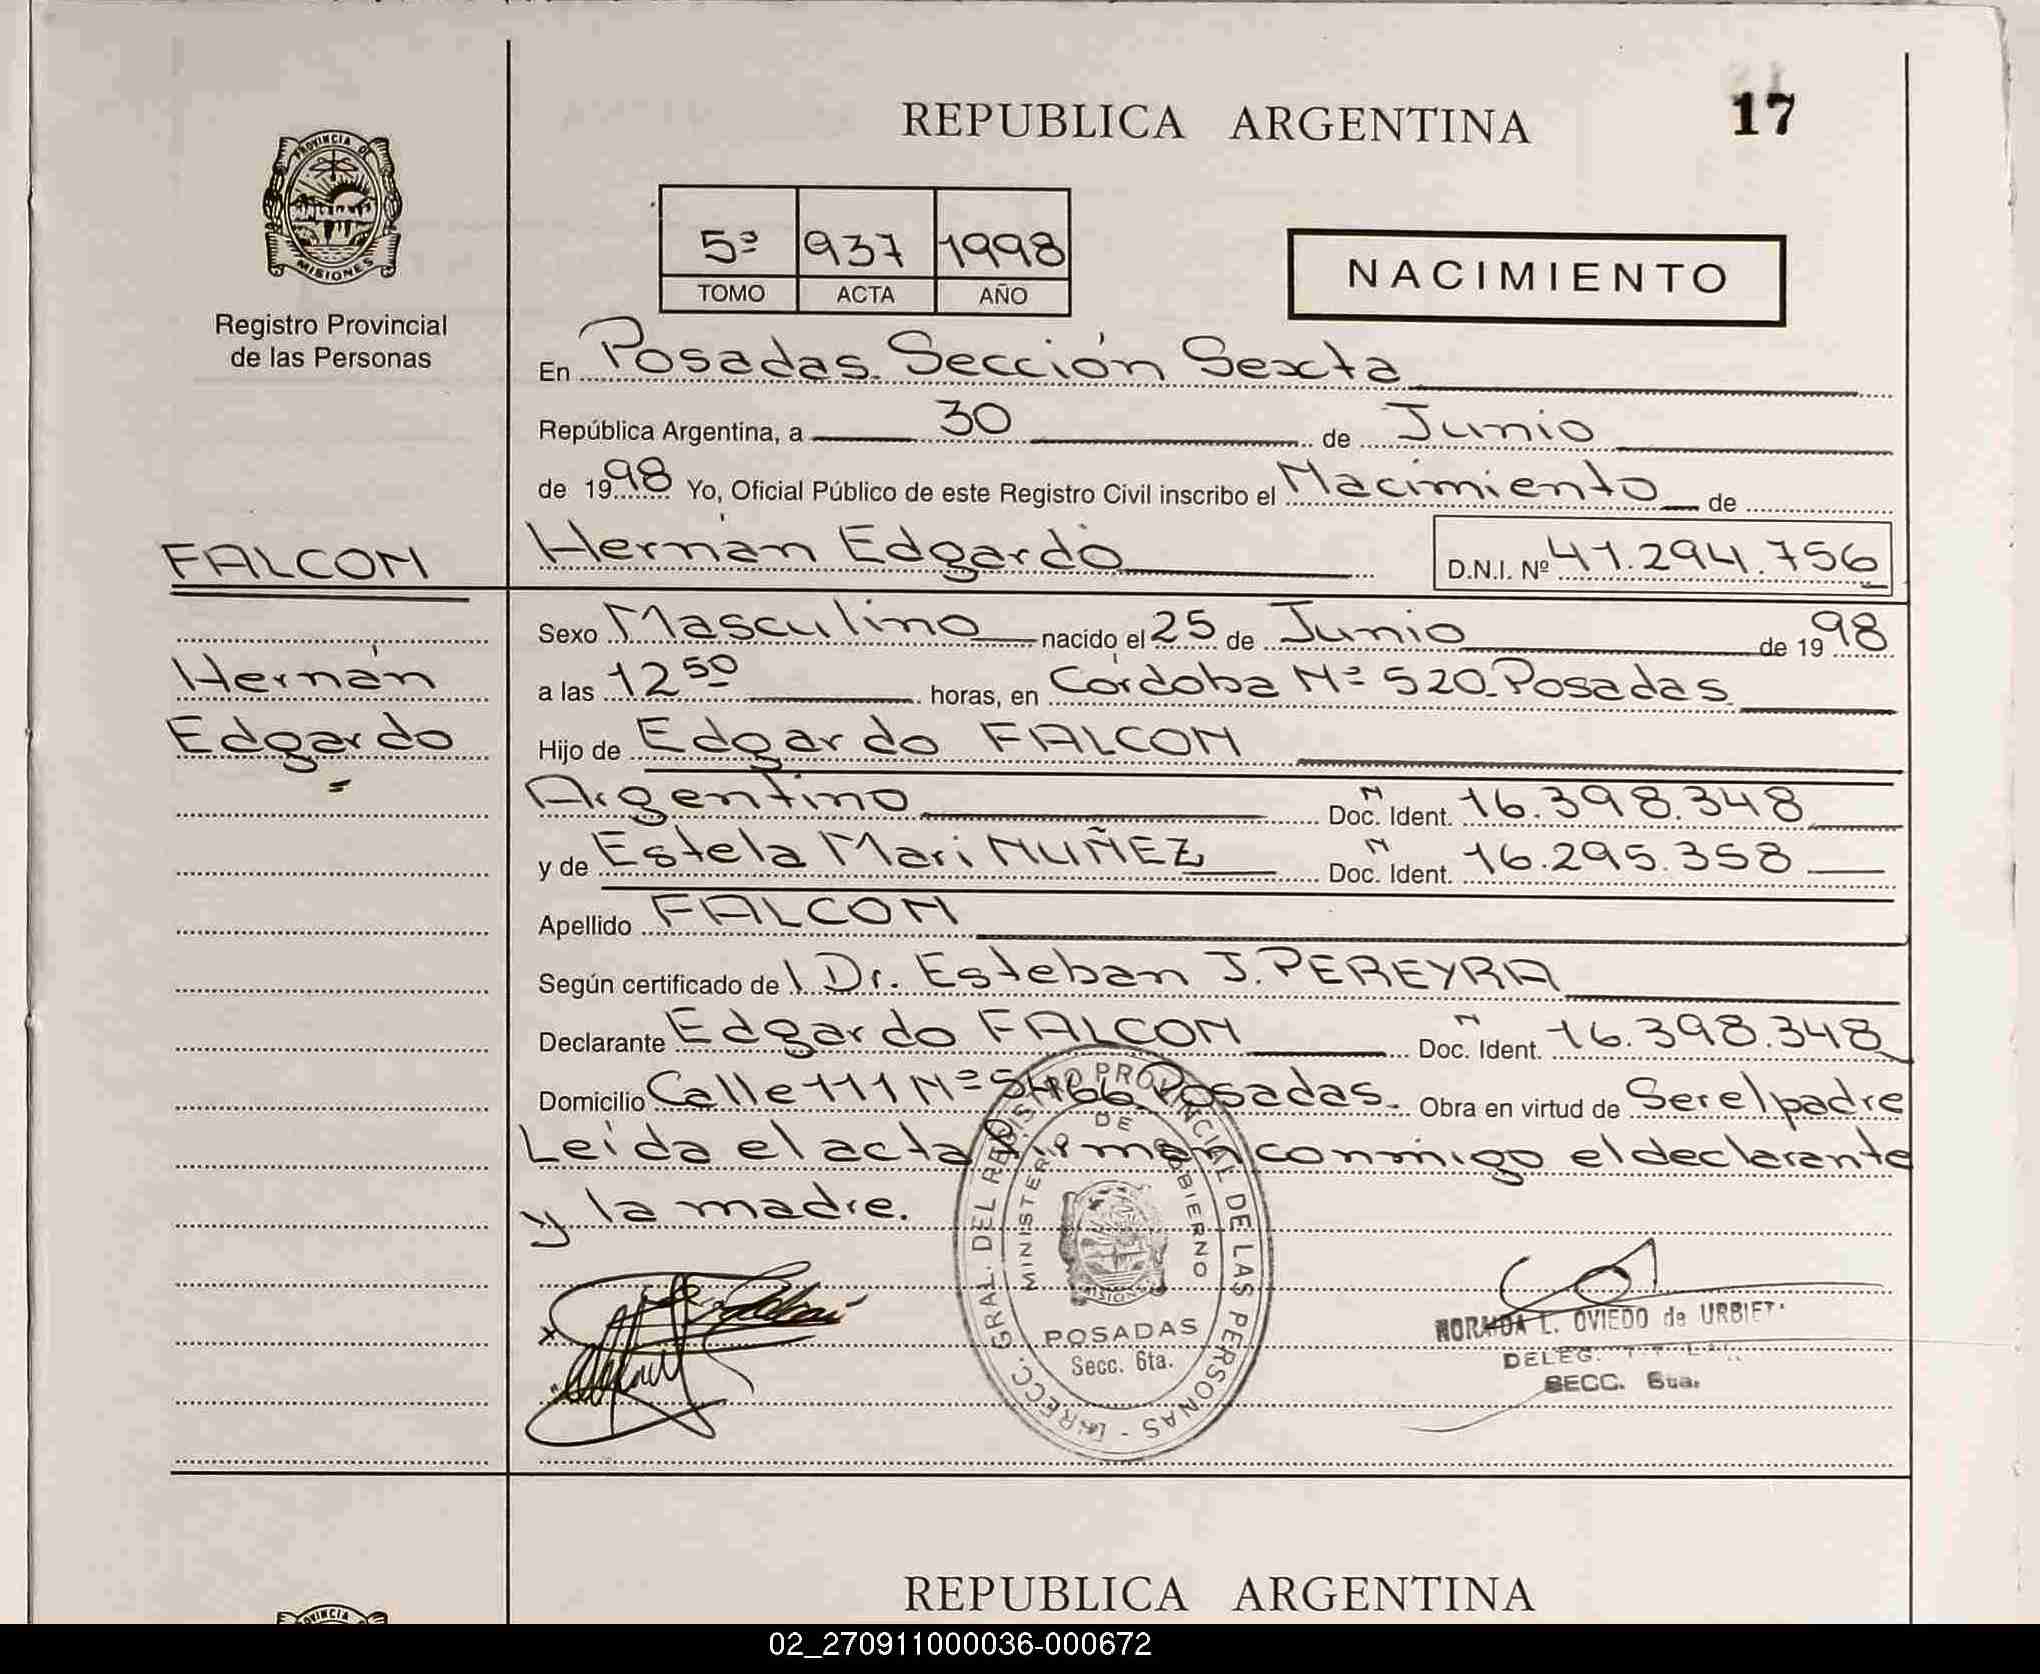 REPUBLICA ARGENTINA
17
PROVINCIA DE
MISIONES
Registro Provincial
de las Personas
5º 937 1998
TOMO ACTA AÑO
NACIMIENTO
En Posadas. Sección Sexta
República Argentina, a 30 de Junio
de 1998 Yo, Oficial Público de este Registro Civil inscribo el Nacimiento de
FALCON
Hernán Edgardo D.N.I. Nº 41.294.756
Sexo Masculino nacido el 25 de Junio de 1998
Hernán
a las 12 50 horas, en Córdoba Nº 520 Posadas
Edgardo
Hijo de Edgardo FALCON
Argentino Doc. N Ident. 16.398.348
y de Estela Mari NUÑEZ Doc. N Ident. 16.295.358
Apellido FALCON
Según certificado de l Dr. Esteban J. PEREYRA
Declarante Edgardo FALCON Doc. N Ident. 16.398.348
Domicilio Calle 111 Nº 5466 Posadas. Obra en virtud de Ser el padre
Leída el acta firman conmigo el declarante
y la madre.
GRAL. DEL REGISTRO PROVINCIAL DE LAS PERSONAS
MINISTERIO DE GOBIERNO
MISIONES
POSADAS
Secc. 6ta.
L. OVIEDO de
SECC. 6ta.
REPUBLICA ARGENTINA
PROVINCIA
02_270911000036-000672